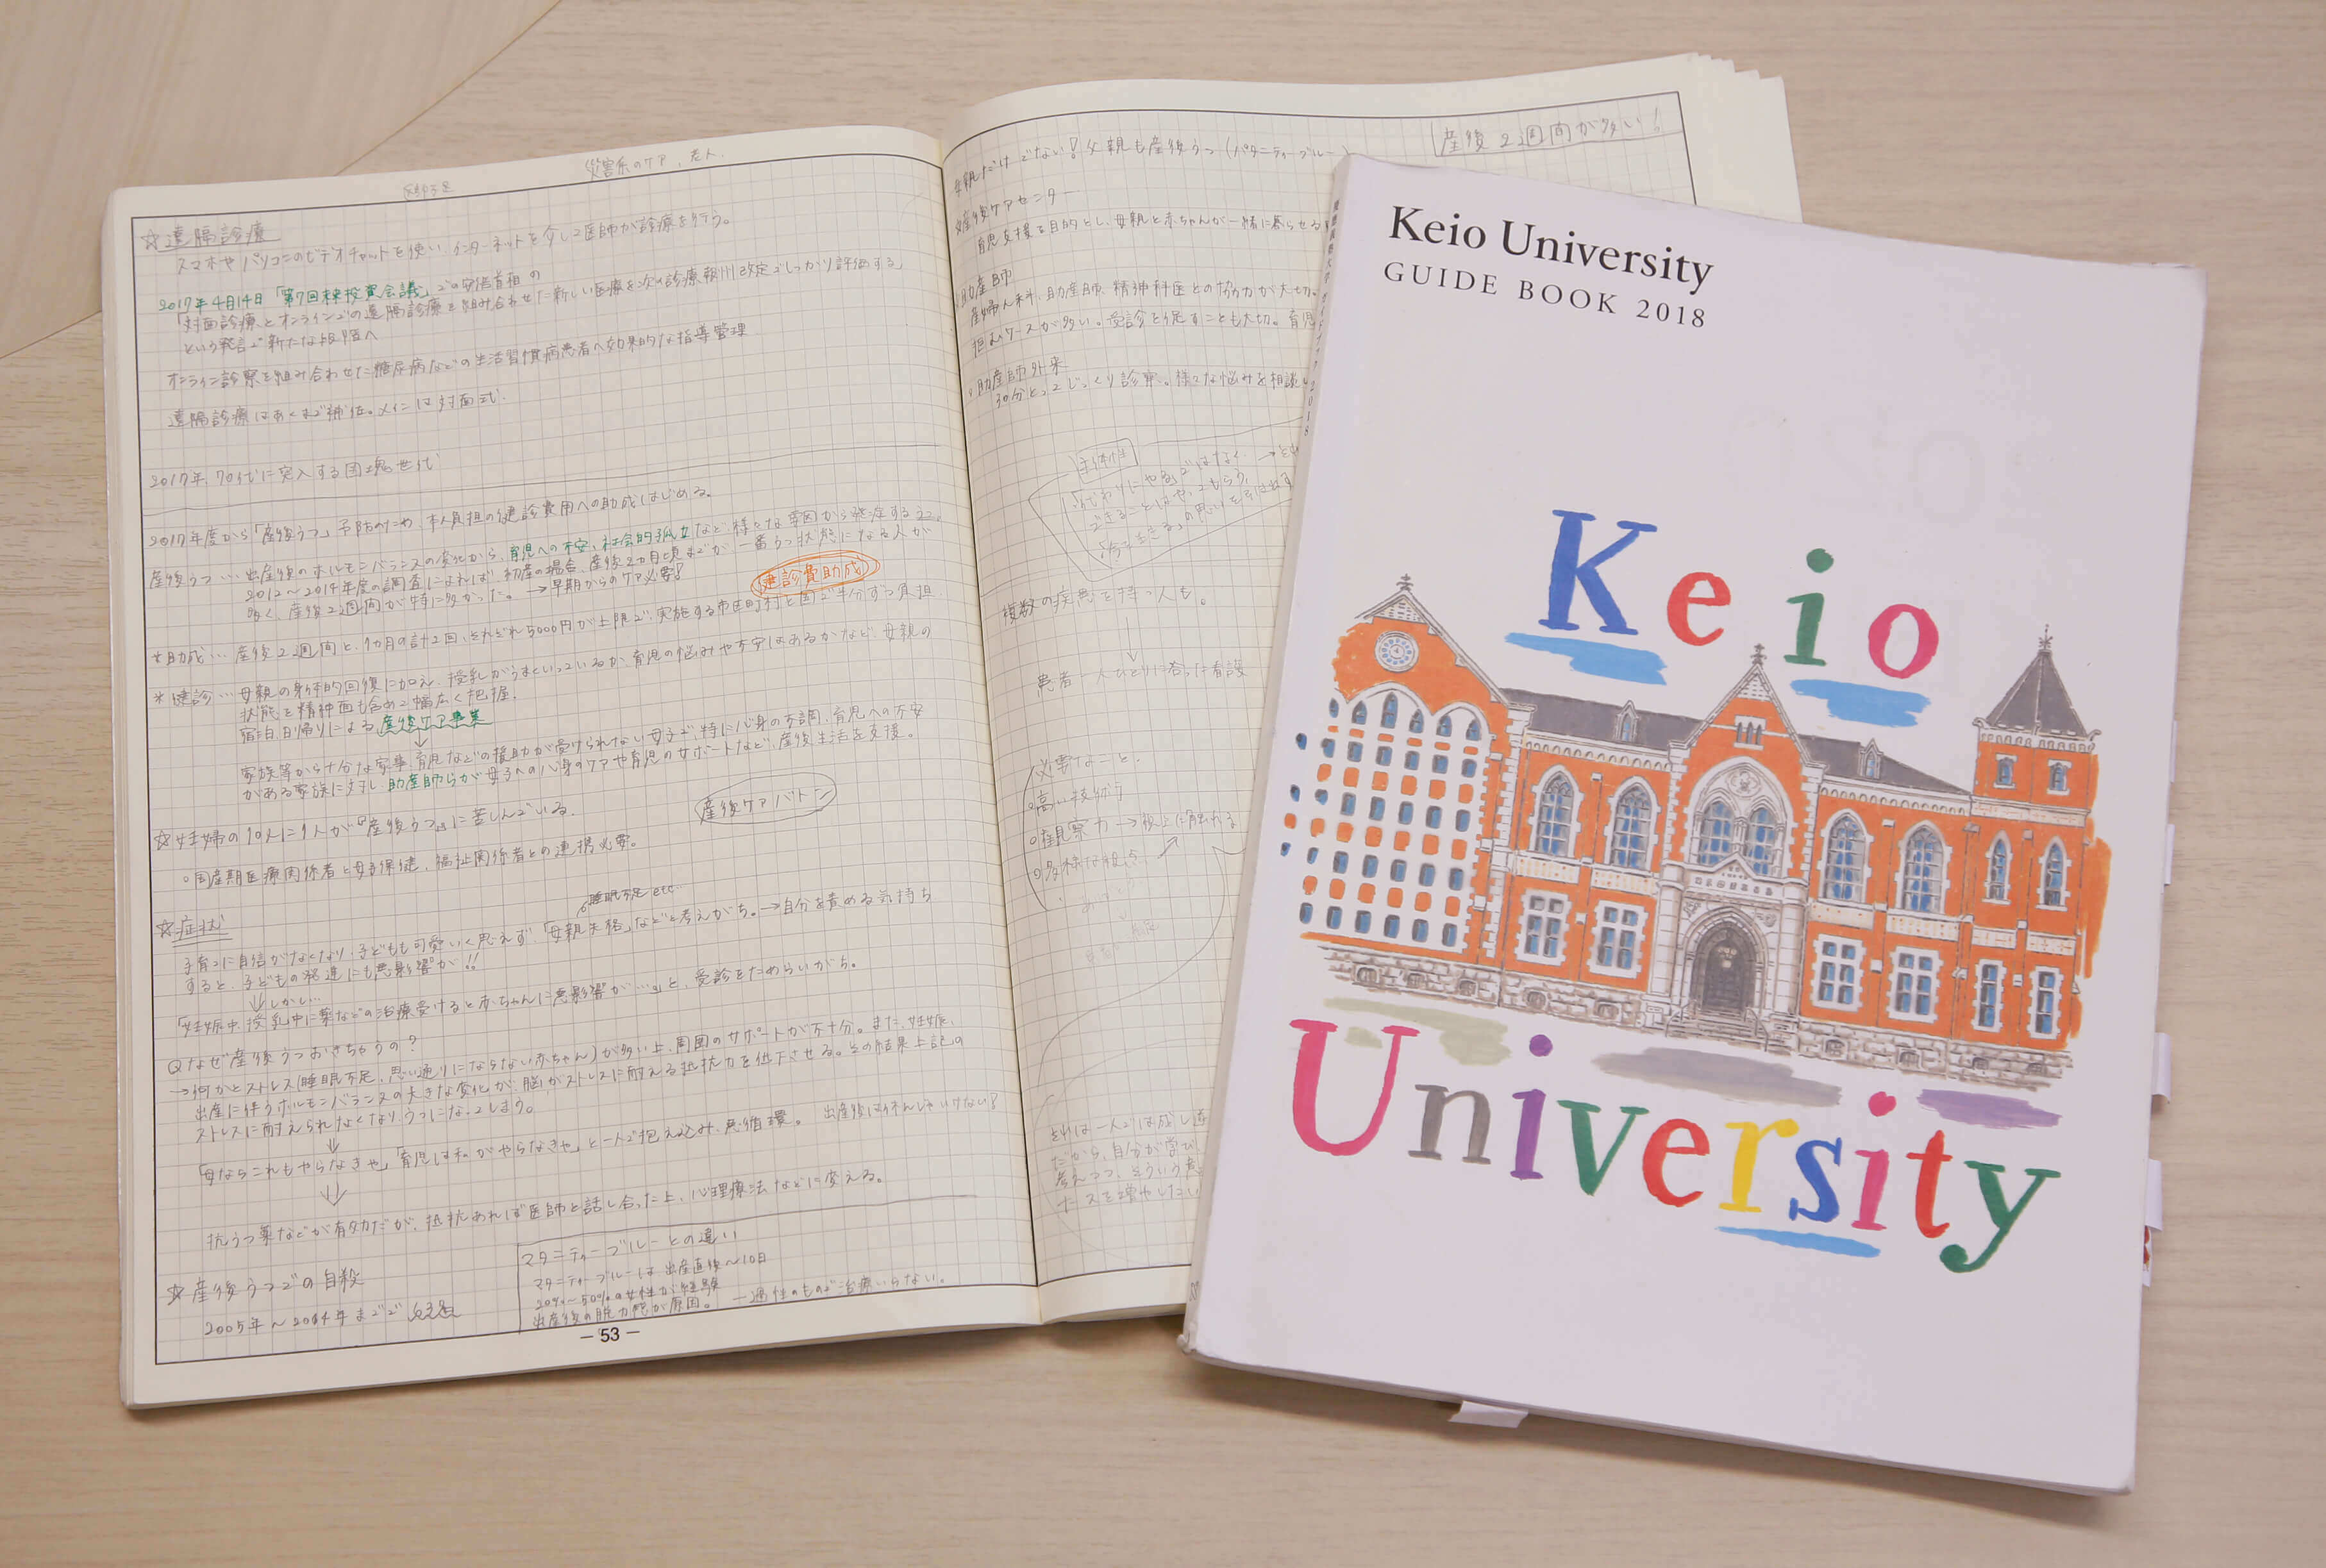 医師不足
災害系のケア、老人
☆遠隔診療
スマホやパソコンのビデオチャットを使い、インターネットを介して医師が診療を行う。
2017年4月14日「第7回未来投資会議」での安倍首相の
「対面診療とオンラインでの遠隔診療を組み合わせた新しい医療を次の診療報酬改定でしっかり評価する」
という発言で新たな段階へ
オンライン診察を組み合わせた糖尿病などの生活習慣病患者へ効果的な指導管理
遠隔診療はあくまで補佐。メインは対面式.
2017年、70代に突入する団塊世代
2017年度から「産後うつ」予防のため、本人負担の健診費用への助成はじめる。
産後うつ…出産後のホルモンバランスの変化から、育児への不安、社会的孤立など様々な原因から発症するうつ。
2012～2014年度の調査によれば、初産の場合、産後2カ月頃までが一番うつ状態になる人が
多く、産後2週間が特に多かった。→早期からのケア必要!
健診費助成
*助成…産後2週間と、1カ月の計2回、それぞれ5000円が上限で、実施する市区町村と国で半分ずつ負担.
*健診…母親の身体的回復に加え、授乳がうまくいっているか、育児の悩みや不安はあるかなど、母親の
状態を精神面も含めて幅広く把握.
宿泊、日帰りによる産後ケア事業
↓
家族等から十分な家事、育児などの援助が受けられない母子で、特に心身の不調、育児への不安
がある家族に対し、助産師らが母子への心身のケアや育児のサポートなど、産後生活を支援。
産後ケアバトン
☆妊婦の10人に1人が『産後うつ』に苦しんでいる.
○周産期医療関係者と母子保健、福祉関係者との連携必要。
睡眠不足etc…
☆症状
子育てに自信がなくなり、子どもも可愛いく思えず、「母親失格」などと考えがち。→自分を責める気持ち
すると、子どもの発達にも悪影響が!!
↓しかし…
「妊娠中、授乳中に薬などの治療受けると赤ちゃんに悪影響が…」と、受診をためらいがち。
Qなぜ産後うつおきちゃうの?
→何かとストレス(睡眠不足、思い通りにならない赤ちゃん)が多い上、周囲のサポートが不十分。また、妊娠、
出産に伴うホルモンバランスの大きな変化が、脳がストレスに耐える抵抗力を低下させる。その結果上記の
ストレスに耐えられなくなり、うつになってしまう。
↓
「母ならこれもやらなきゃ」「育児は私がやらなきゃ」と一人で抱え込み、悪循環。 出産後は休んじゃいけない?
↓
抗うつ薬などが有効だが、抵抗あれば医師と話し合った上、心理療法などに変える。
☆産後うつでの自殺
2005年～2014年までで
マタニティーブルーとの違い
マタニティーブルーは出産直後～10日
20%～50%の女性が経験
出産後の脱力感が原因。 一過性のもので治療いらない.
— 53 —
産後2週間が多い!
母親だけでない!父親も産後うつ(パタニティーブルー)
産後ケアセンター
育児支援を目的とし、母親と赤ちゃんが一緒に暮らせる
助産師
産婦人科、助産師、精神科医との協力が大切。
拒むケースが多い。受診を促すことも大切。育児
○助産師外来
30分とってじっくり診察。様々な悩みを相談
主体性
「代わりにやる」ではなく
できることはやってもらう,
複数の疾患を持つ人も。
↓
患者一人ひとりに合った看護
必要なこと.
○高い技術力
○観察力
○多様な視点
それは一人では成し遂
だから、自分が学び
考えつつ、そういう
ナースを増やしたい
Keio University
GUIDE BOOK 2018
慶應義塾大学 ガイドブック 2018
Keio
University